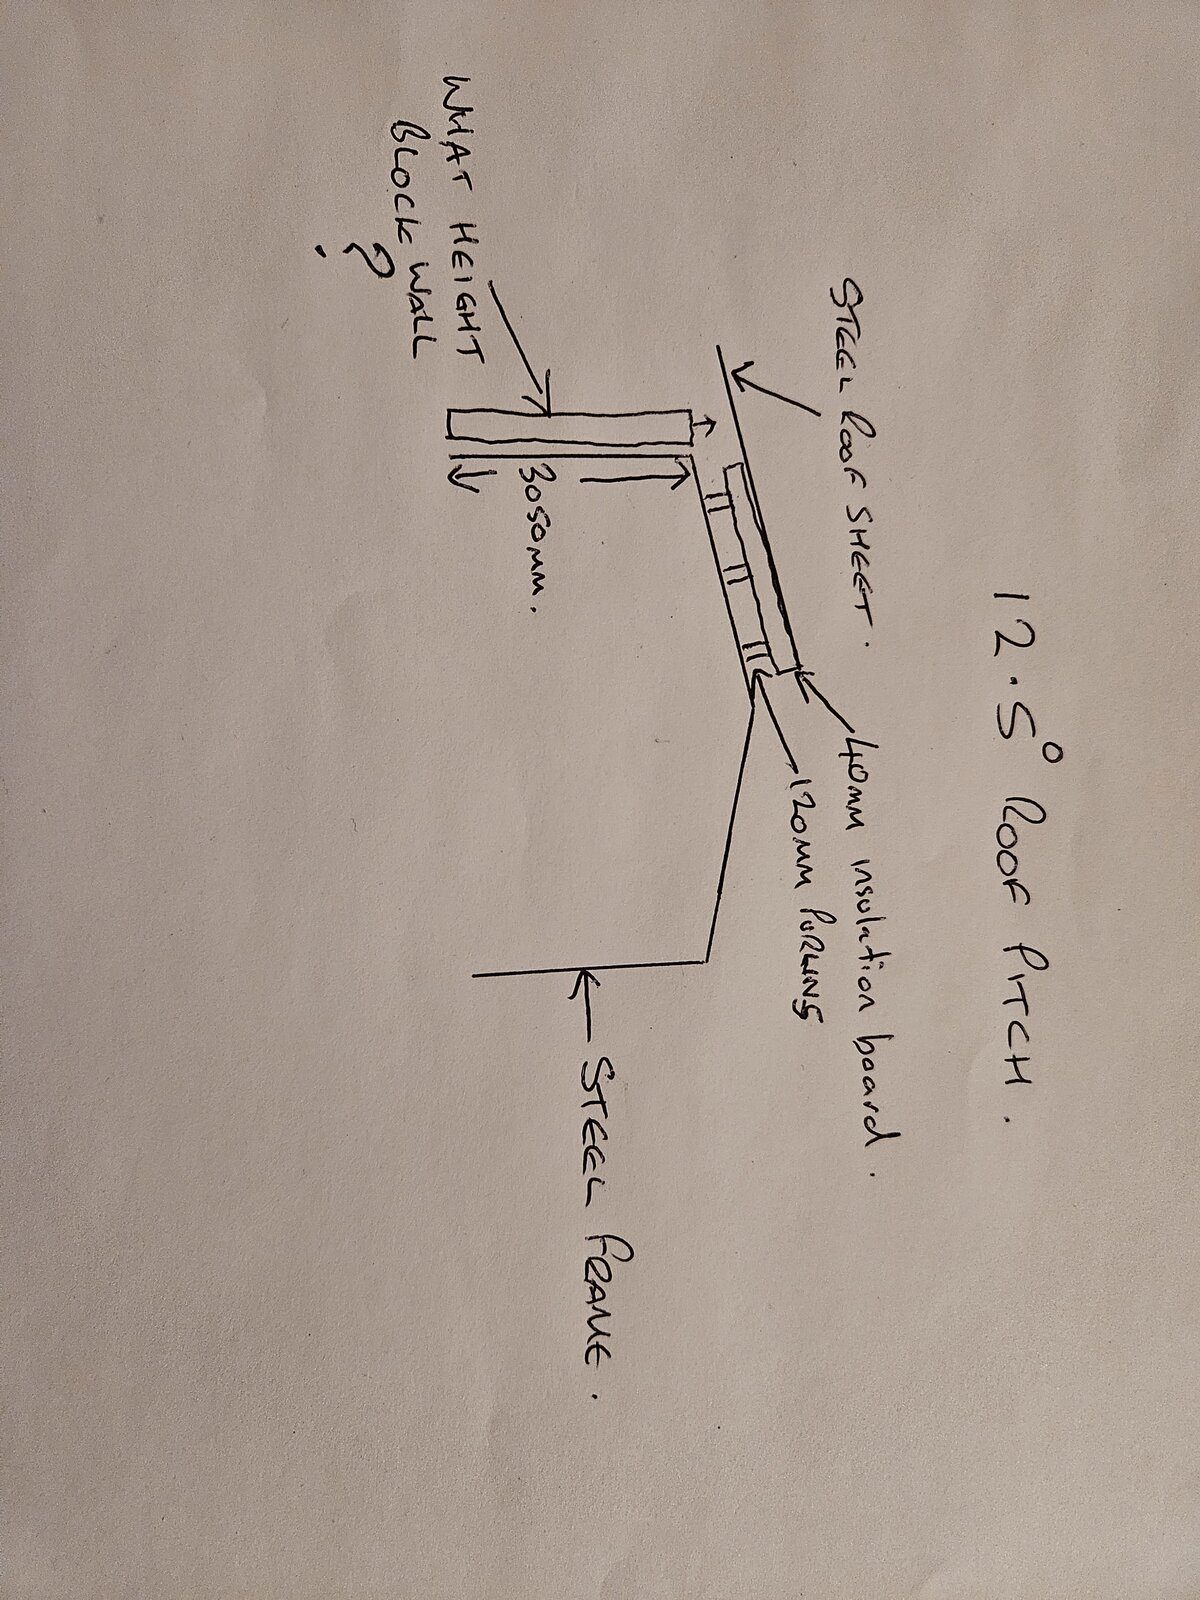 12.5° ROOF PITCH.
STEEL ROOF SHEET.
40mm insulation board.
120MM PURLINS
WHAT HEIGHT
BLOCK WALL
?
3050MM.
STEEL FRAME.